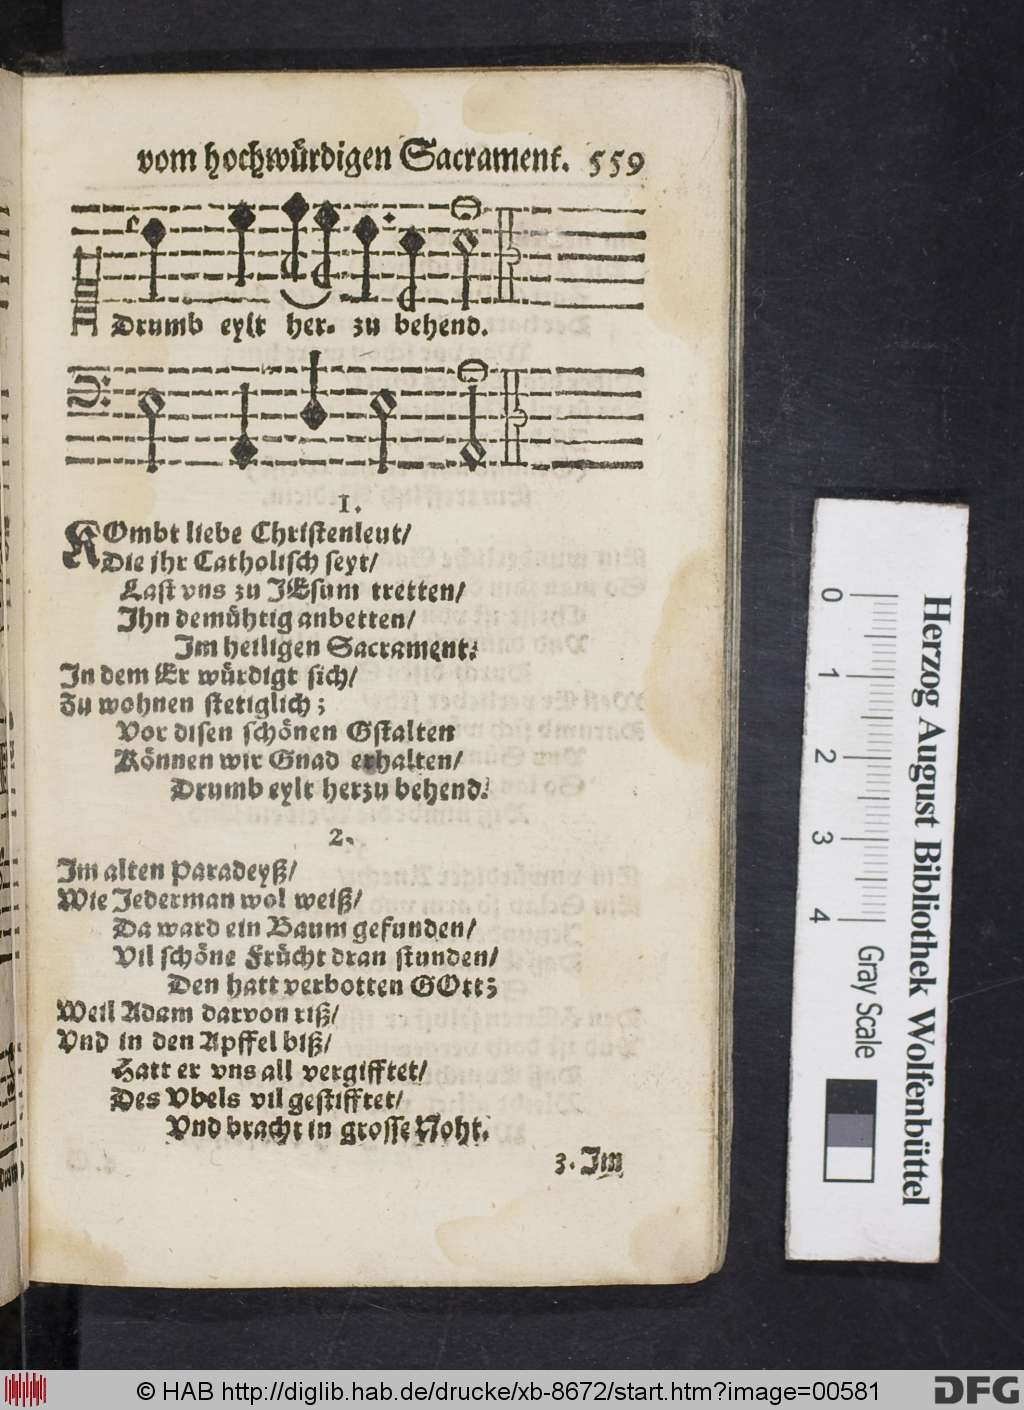 vom hochwürdigen Sacrament. 559
Drumb eylt her- zu behend.
1.
KOmbt liebe Christenleut/
Die jhr Catholisch seyt/
Last vns zu JEsum tretten/
Jhn demühtig anbetten/
Jm heiligen Sacrament:
Jn dem Er würdigt sich/
Zu wohnen stetiglich;
Vor disen schönen Gstalten
Können wir Gnad erhalten/
Drumb eylt herzu behend.
2.
Jm alten Paradeyß/
Wie Jederman wol weiß/
Da ward ein Baum gefunden/
Vil schöne Frücht dran stunden/
Den hatt verbotten GOtt;
Weil Adam darvon riß/
Vnd in den Apffel biß/
Hatt er vns all vergifftet/
Des Vbels vil gestifftet/
Vnd bracht in grosse Noht.
3. Jm
0 1 2 3 4
Gray Scale
Herzog August Bibliothek Wolfenbüttel
© HAB http://diglib.hab.de/drucke/xb-8672/start.htm?image=00581
DFG